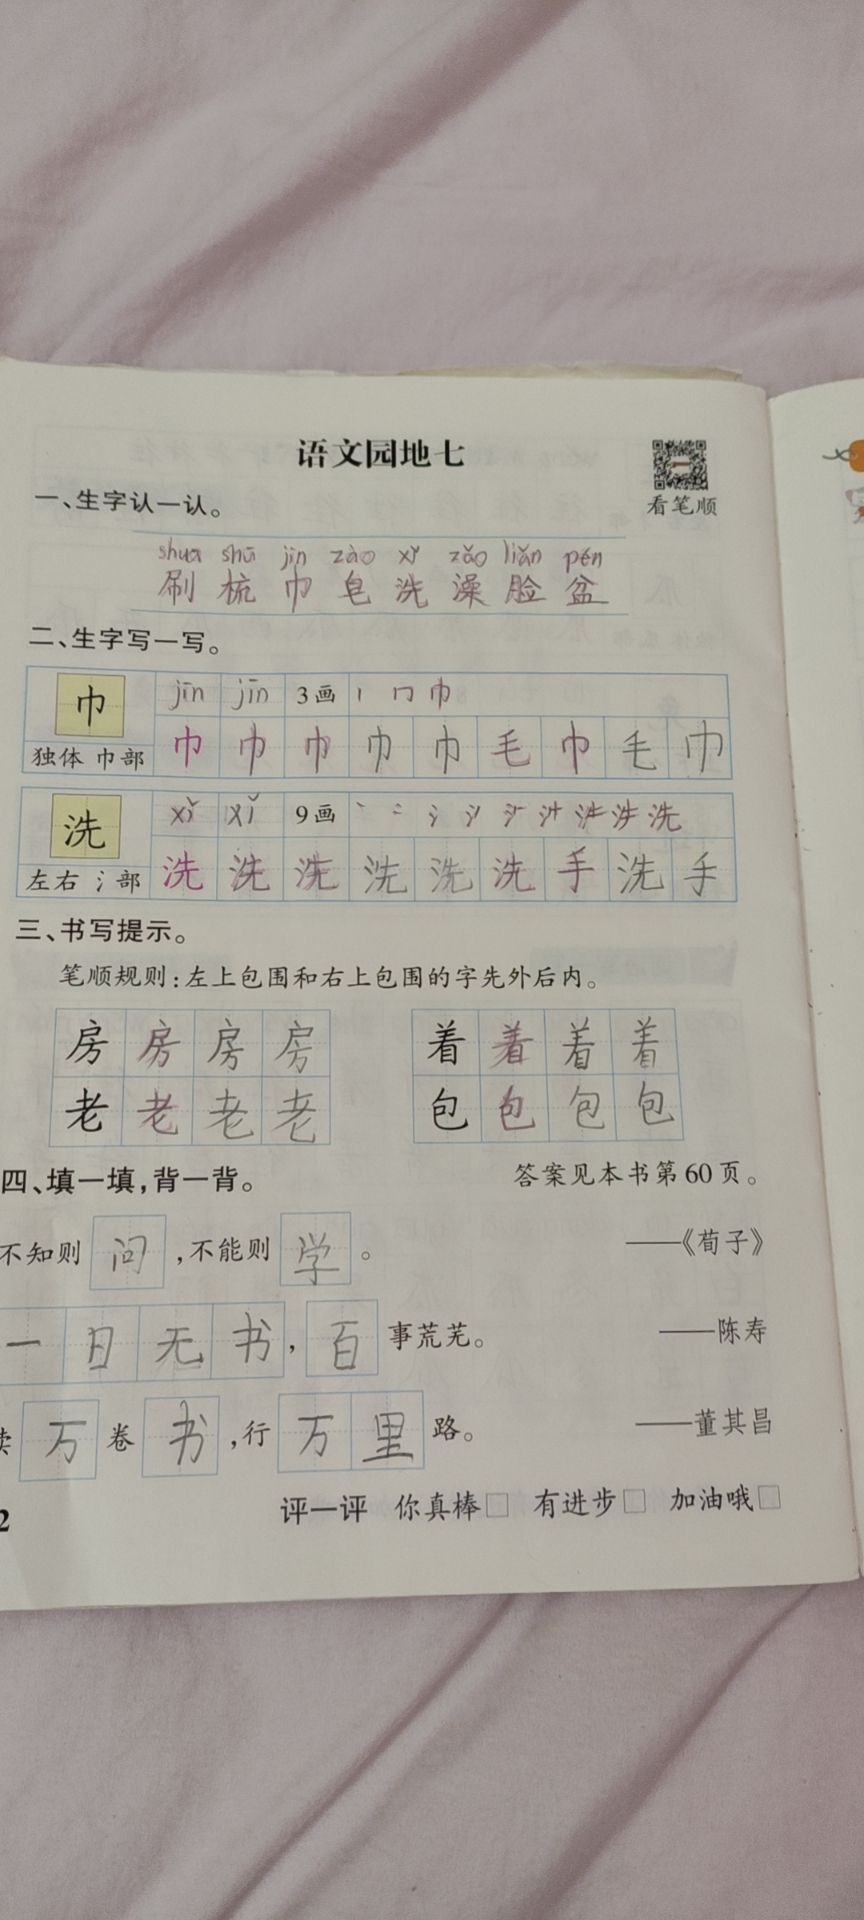 语文园地七
看笔顺
一、生字认一认。
shuā shū jīn zào xǐ zǎo liǎn pén
刷 梳 巾 皂 洗 澡 脸 盆
二、生字写一写。
巾 jīn jīn 3画 丨 冂 巾
独体 巾部 巾 巾 巾 巾 巾 毛 巾 毛 巾
洗 xǐ xǐ 9画 洗
左右 氵部 洗 洗 洗 洗 洗 洗 手 洗 手
三、书写提示。
笔顺规则:左上包围和右上包围的字先外后内。
房 房 房 房 着 着 着 着
老 老 老 老 包 包 包 包
四、填一填,背一背。 答案见本书第60页。
不知则 问 ,不能则 学 。 ——《荀子》
一 日 无 书 , 百 事荒芜。 ——陈寿
万 卷 书 ,行 万 里 路。 ——董其昌
评一评 你真棒□ 有进步□ 加油哦□
2